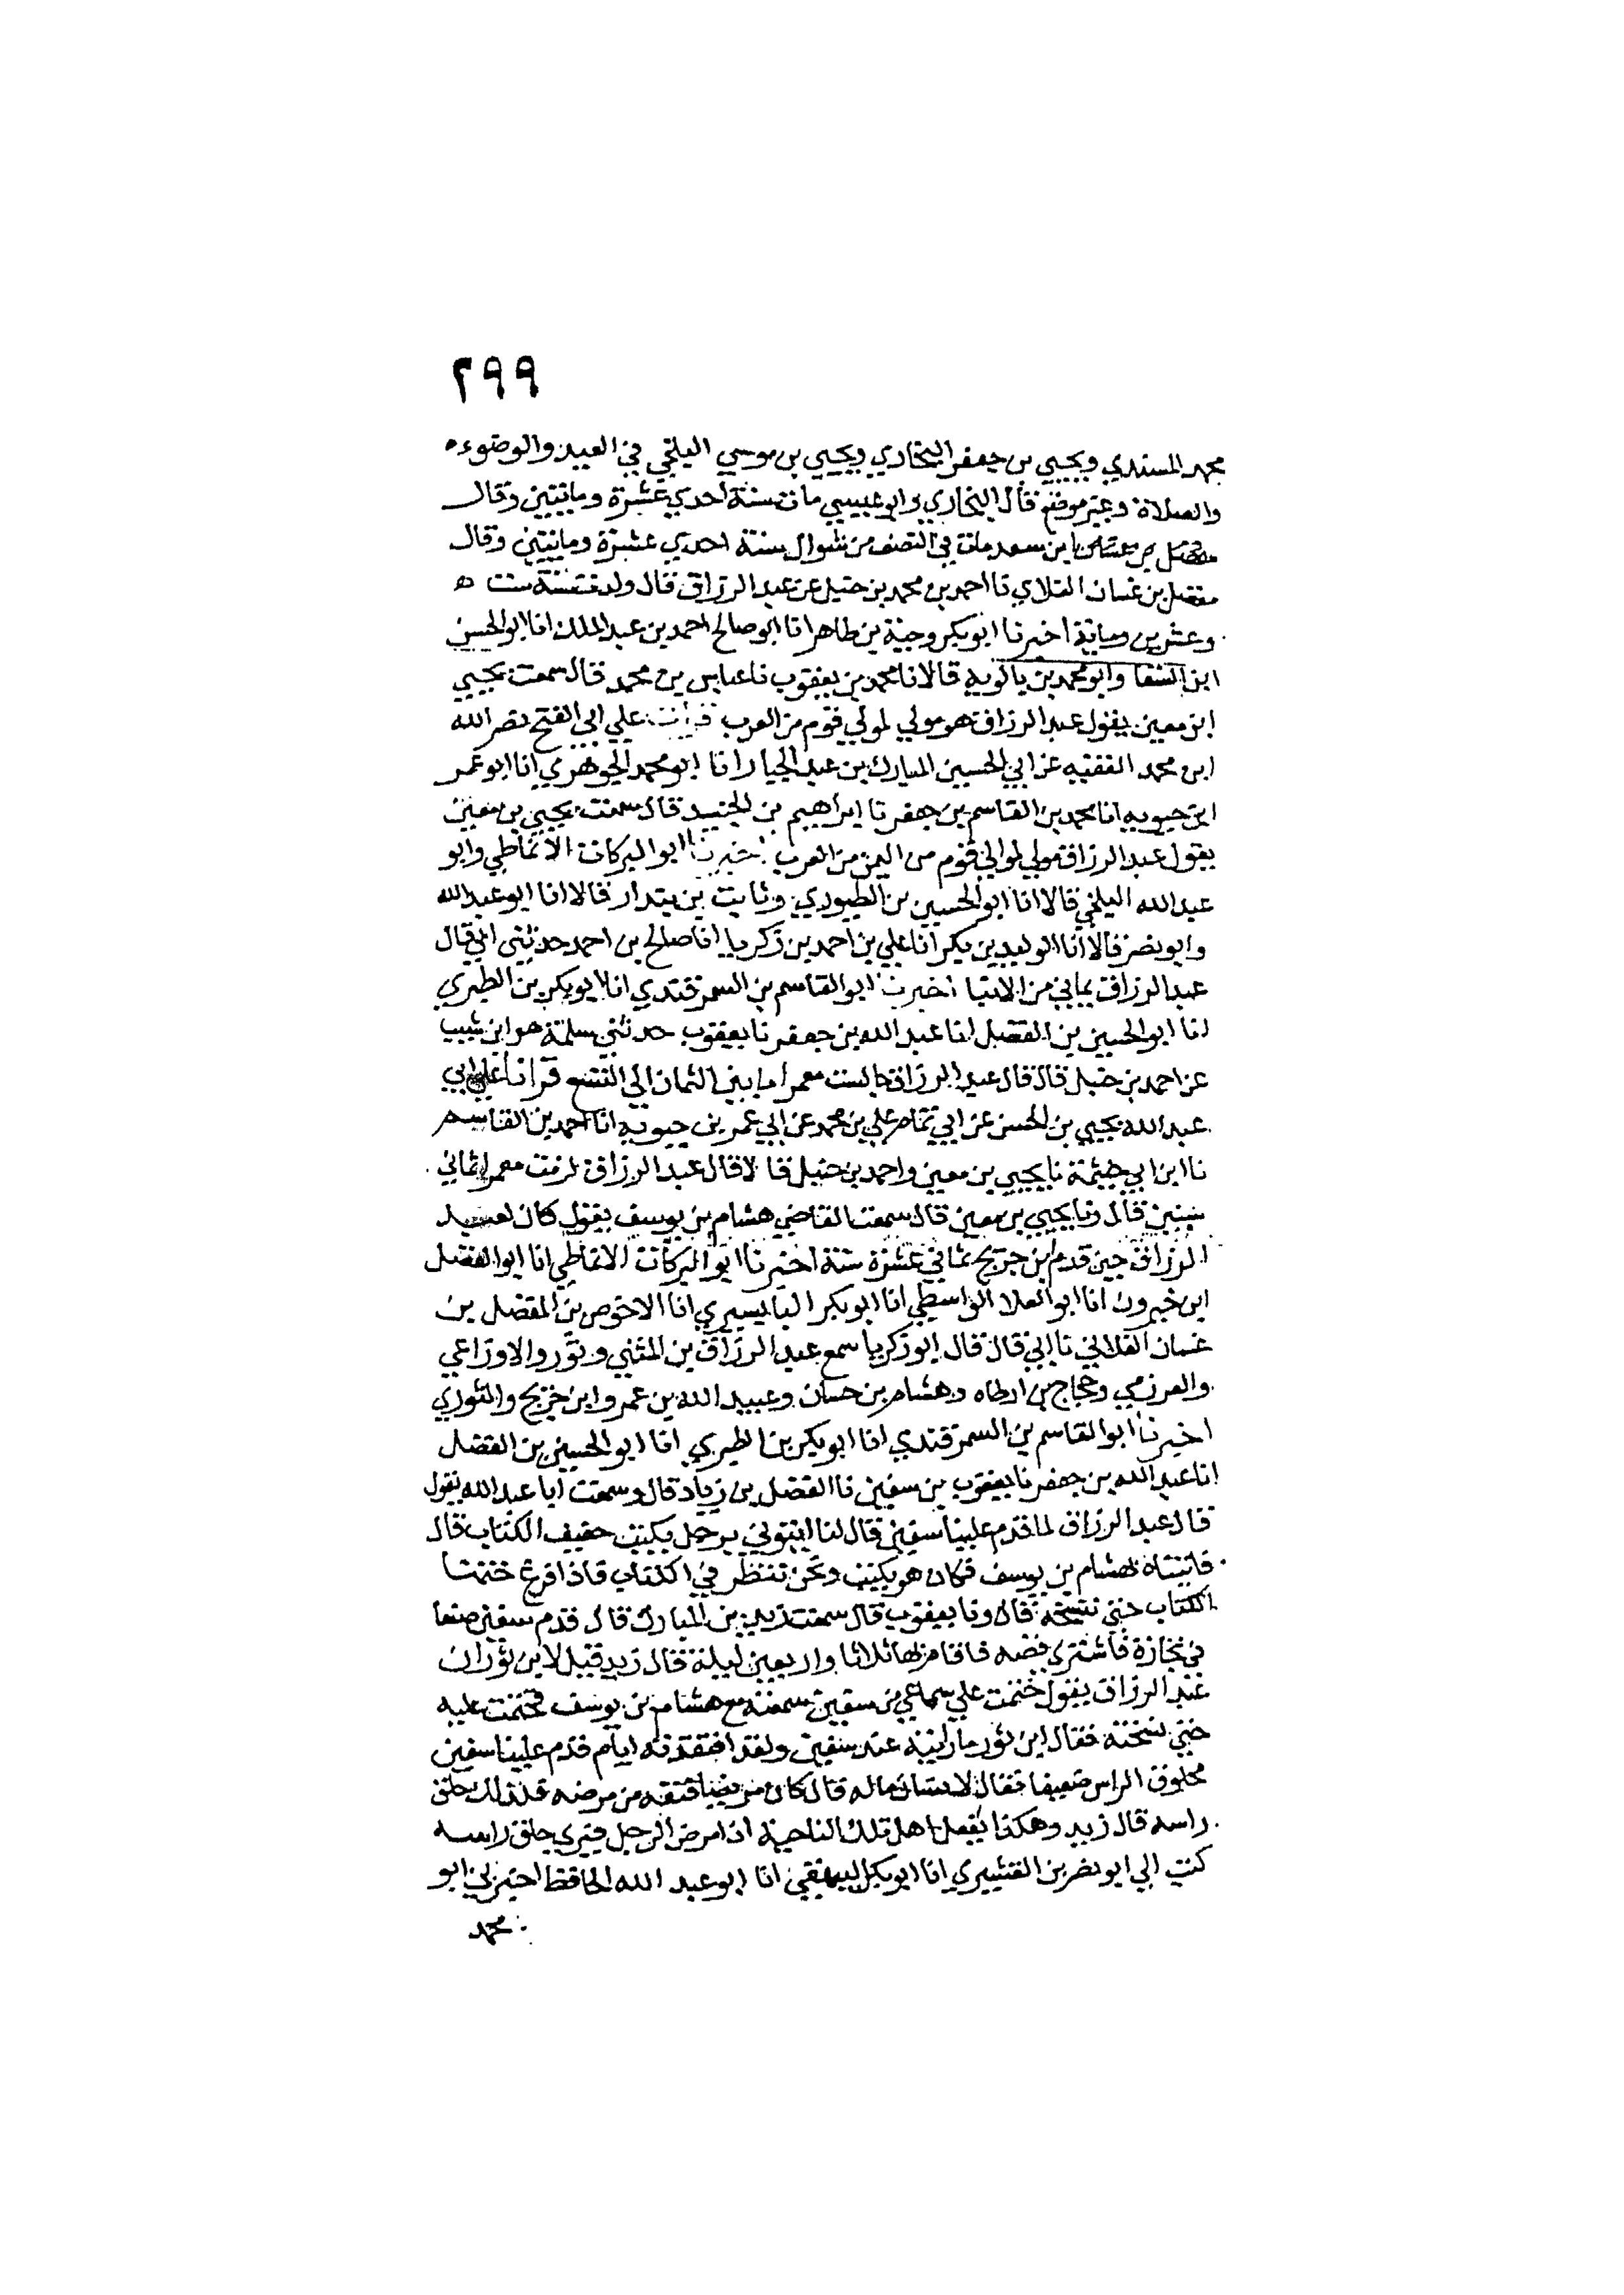 ٢٩٩
محمد المسندي ويحيي بن جعفر البخاري ويحيي بن موسي البلخي في العيدين والوضوء
والصلاة وغير موضع قال البخاري وابو عيسي مات سنة احدي عشرة ومايتين وقال
ابن سعد مات في النصف من شوال سنة احدي عشرة ومايتين وقال
مفضل بن غسان الغلابي نا احمد بن محمد بن حنبل عن عبد الرزاق قال ولدت سنة ست ه
وعشرين وماية اخبرنا ابو بكر وجيه بن طاهر انا ابو صالح احمد بن عبد الملك انا ابو الحسن
ابن السقا وابو محمد بن بالويه قالا نا محمد بن يعقوب نا عباس بن محمد قال سمعت يحيي
ابن معين يقول عبد الرزاق هو مولي لمولي قوم من العرب قرات علي ابي الفتح نصر الله
ابن محمد الفقيه عن ابي الحسين المبارك بن عبد الجبار انا ابو محمد الجوهري انا ابو عمر
ابن حيويه انا محمد بن القاسم بن جعفر نا ابراهيم بن الجنيد قال سمعت يحيي بن معين
يقول عبد الرزاق مولي لموالي قوم من اليمن من العرب اخبرنا ابو البركات الانماطي وابو
عبد الله البلخي قالا انا ابو الحسين بن الطيوري وثابت بن بندار قالا انا ابو عبد الله
وابو نصر قالا انا الوليد بن بكر انا علي بن احمد بن زكريا انا صالح بن احمد حدثني ابي قال
عبد الرزاق يماني من الابنا اخبرنا ابو القاسم بن السمرقندي انا ابو بكر بن الطبري
انا ابو الحسين بن الفضل انا عبد الله بن جعفر نا يعقوب حدثني سلمة هو ابن شبيب
عن احمد بن حنبل قال قال عبد الرزاق جالست معمرا ما بين الثمان الي التسع قرانا علي ابي
عبد الله يحيي بن الحسن عن ابي تمام علي بن محمد عن ابي عمر بن حيويه انا احمد بن القاسم
نا ابن ابي خيثمة نا يحيي بن معين واحمد بن حنبل قالا قال عبد الرزاق لزمت معمرا ثماني
سنين قال ونا يحيي بن معين قال سمعت القاضي هشام بن يوسف يقول كان لعبد
الرزاق حين قدم ابن جريج ثماني عشرة سنة اخبرنا ابو البركات الانماطي انا ابو الفضل
ابن خيرون انا ابو العلا الواسطي انا ابو بكر البابسيري انا الاحوص بن المفضل بن
غسان الغلابي نا ابي قال قال ابو زكريا سمع عبد الرزاق بن المثني وثور والاوزاعي
والعرزمي وحجاج بن ارطاه وهشام بن حسان وعبيد الله بن عمر وابن جريج والثوري
اخبرنا ابو القاسم بن السمرقندي انا ابو بكر بن الطبري انا ابو الحسين بن الفضل
انا عبد الله بن جعفر نا يعقوب بن سفين نا الفضل بن زياد قال وسمعت ابا عبد الله يقول
قال عبد الرزاق لما قدم علينا سفين قال لنا ايتوني برجل يكتب خفيف الكتاب قال
فاتيناه بهشام بن يوسف فكان هو يكتب ونحن ننظر في الكتاب فاذا فرغ ختمنا
الكتاب حتي ننسخه قال ونا يعقوب قال سمعت زيد بن المبارك قال قدم سفين صنعا
في تجازة فاشتري فضه فاقام بها ثلاثا واربعين ليلة قال زيد قيل لابن ثور ان
عبد الرزاق يقول ختمت علي سماعي من سفين سمعته مع هشام بن يوسف فختمت عليه
حتي نسخته فقال ابن ثور ما رايته عند سفين ولقد افتقدته ايام قدم علينا سفين
محلوق الراس ضعيفا فقال لانسان ماله قال كان مريضا فنقه من مرضه فلذلك حلق
راسه قال زيد وهكذا يفعل اهل تلك الناحية اذا مرض الرجل فبري حلق راسه
كتب الي ابو نصر بن القشيري انا ابو بكر البيهقي انا ابو عبد الله الحافظ اخبرني ابو
محمد